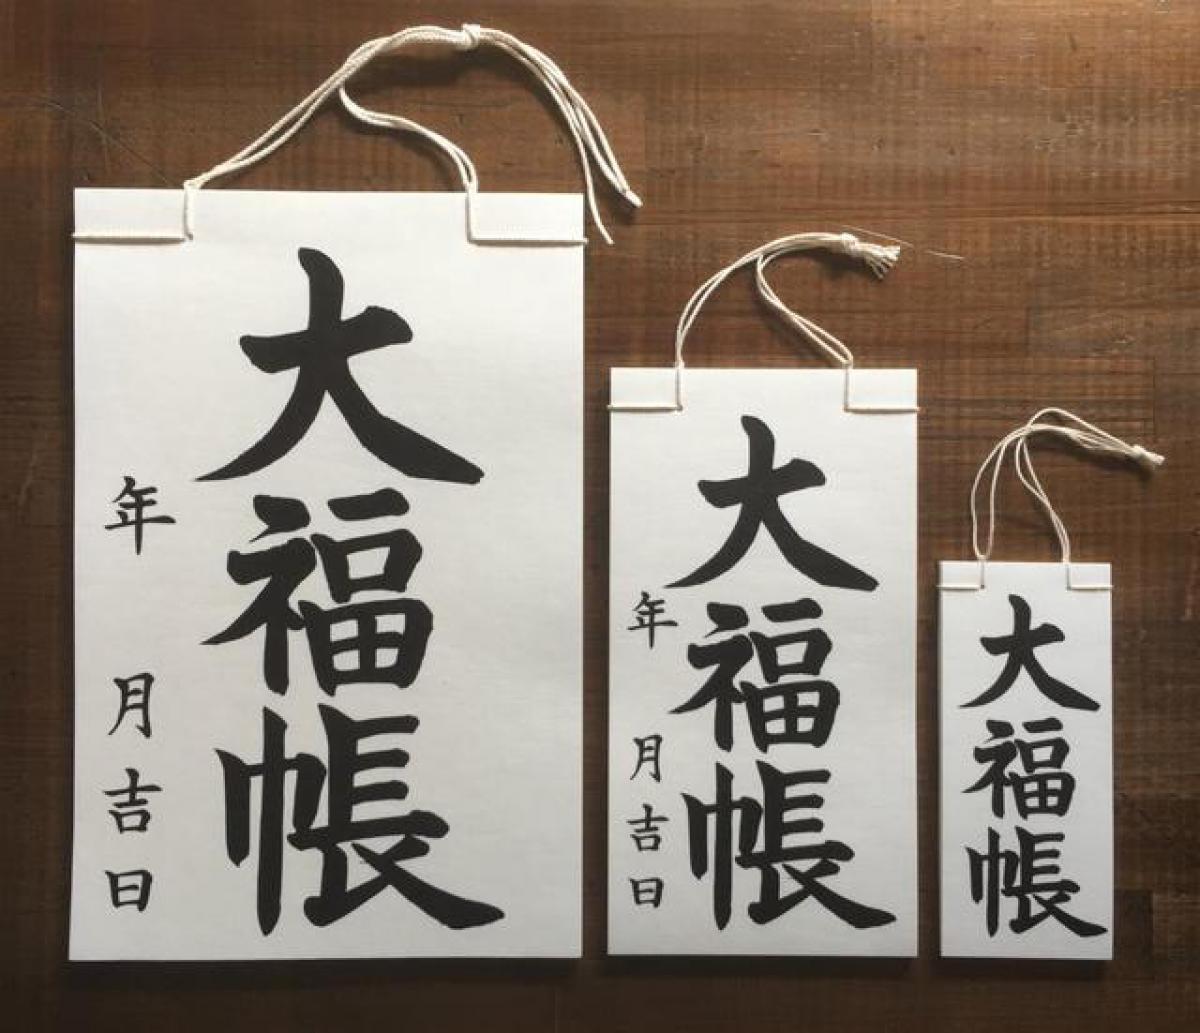 大福帳
年 月吉日
大福帳
年 月吉日
大福帳